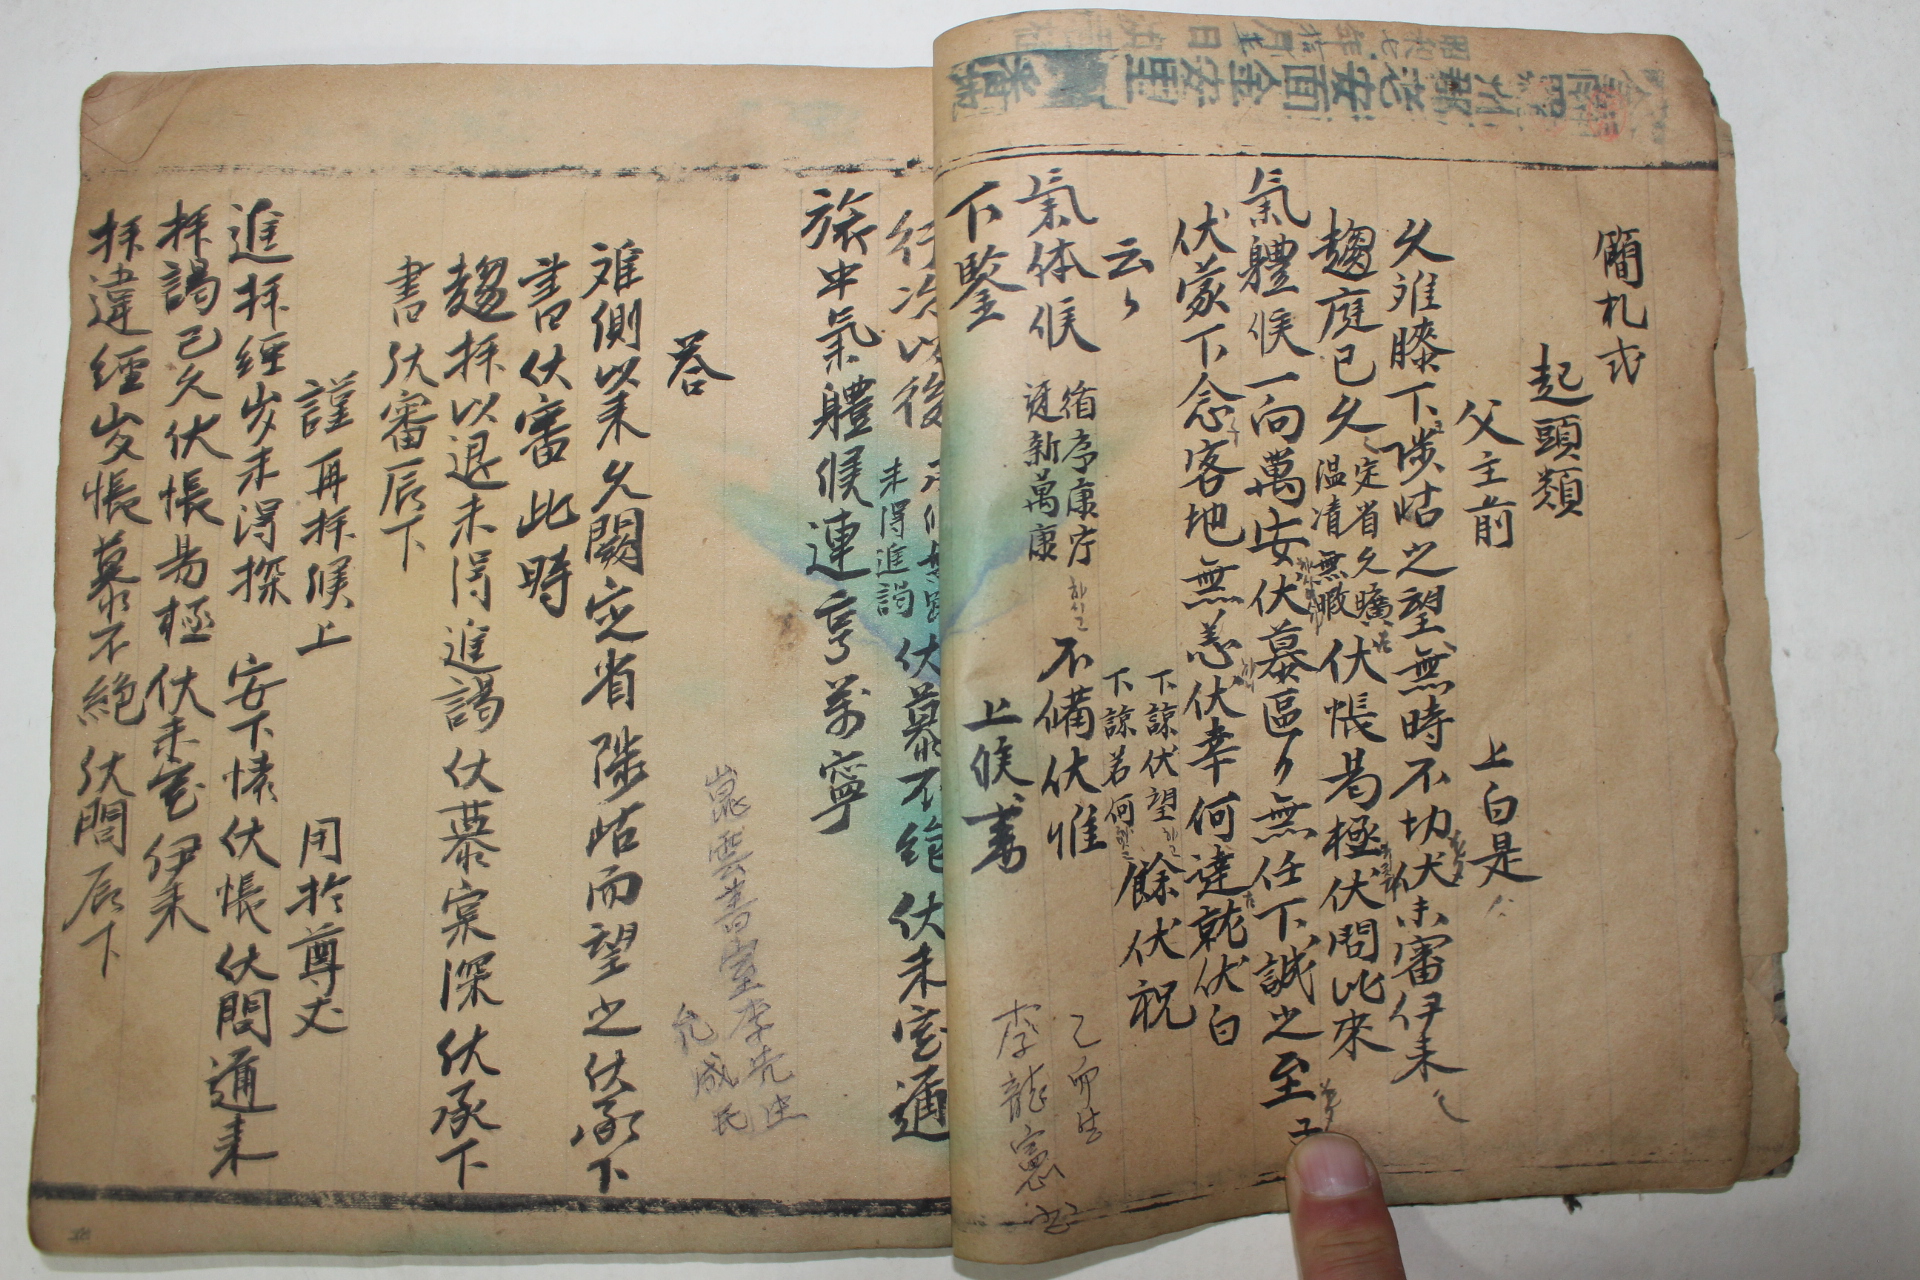 簡札式
起頭類
父主前 上白是
久離膝下陟岵之望無時不切伏未審伊來
趨庭已久 定省久曠 溫凊無暇 伏悵曷極伏問比來
氣體候一向萬安伏慕區々無任下誠之至子
伏蒙下念客地無恙伏幸何達就伏白
云々 下諒伏望 下諒若何 餘伏祝
氣体候 循序康泰 迓新萬康 不備伏惟
下鑒 上候書
乙卯生
李龍憲
行次以後 未得進謁 伏慕不絶伏未審邇
旅中氣體候連享萬寧
崑雲書室李先生
允成氏
答
離側以來久闕定省陟岵而望之伏承下
書伏審此時
趨拜以退未得進謁伏慕寀深伏承下
書伏審辰下
謹再拜候上 用於尊丈
進拜經歲未得探 安下悚伏悵伏問邇來
拜謁已久伏悵曷極伏未審伊來
拜違經歲悵慕不絶伏問辰下